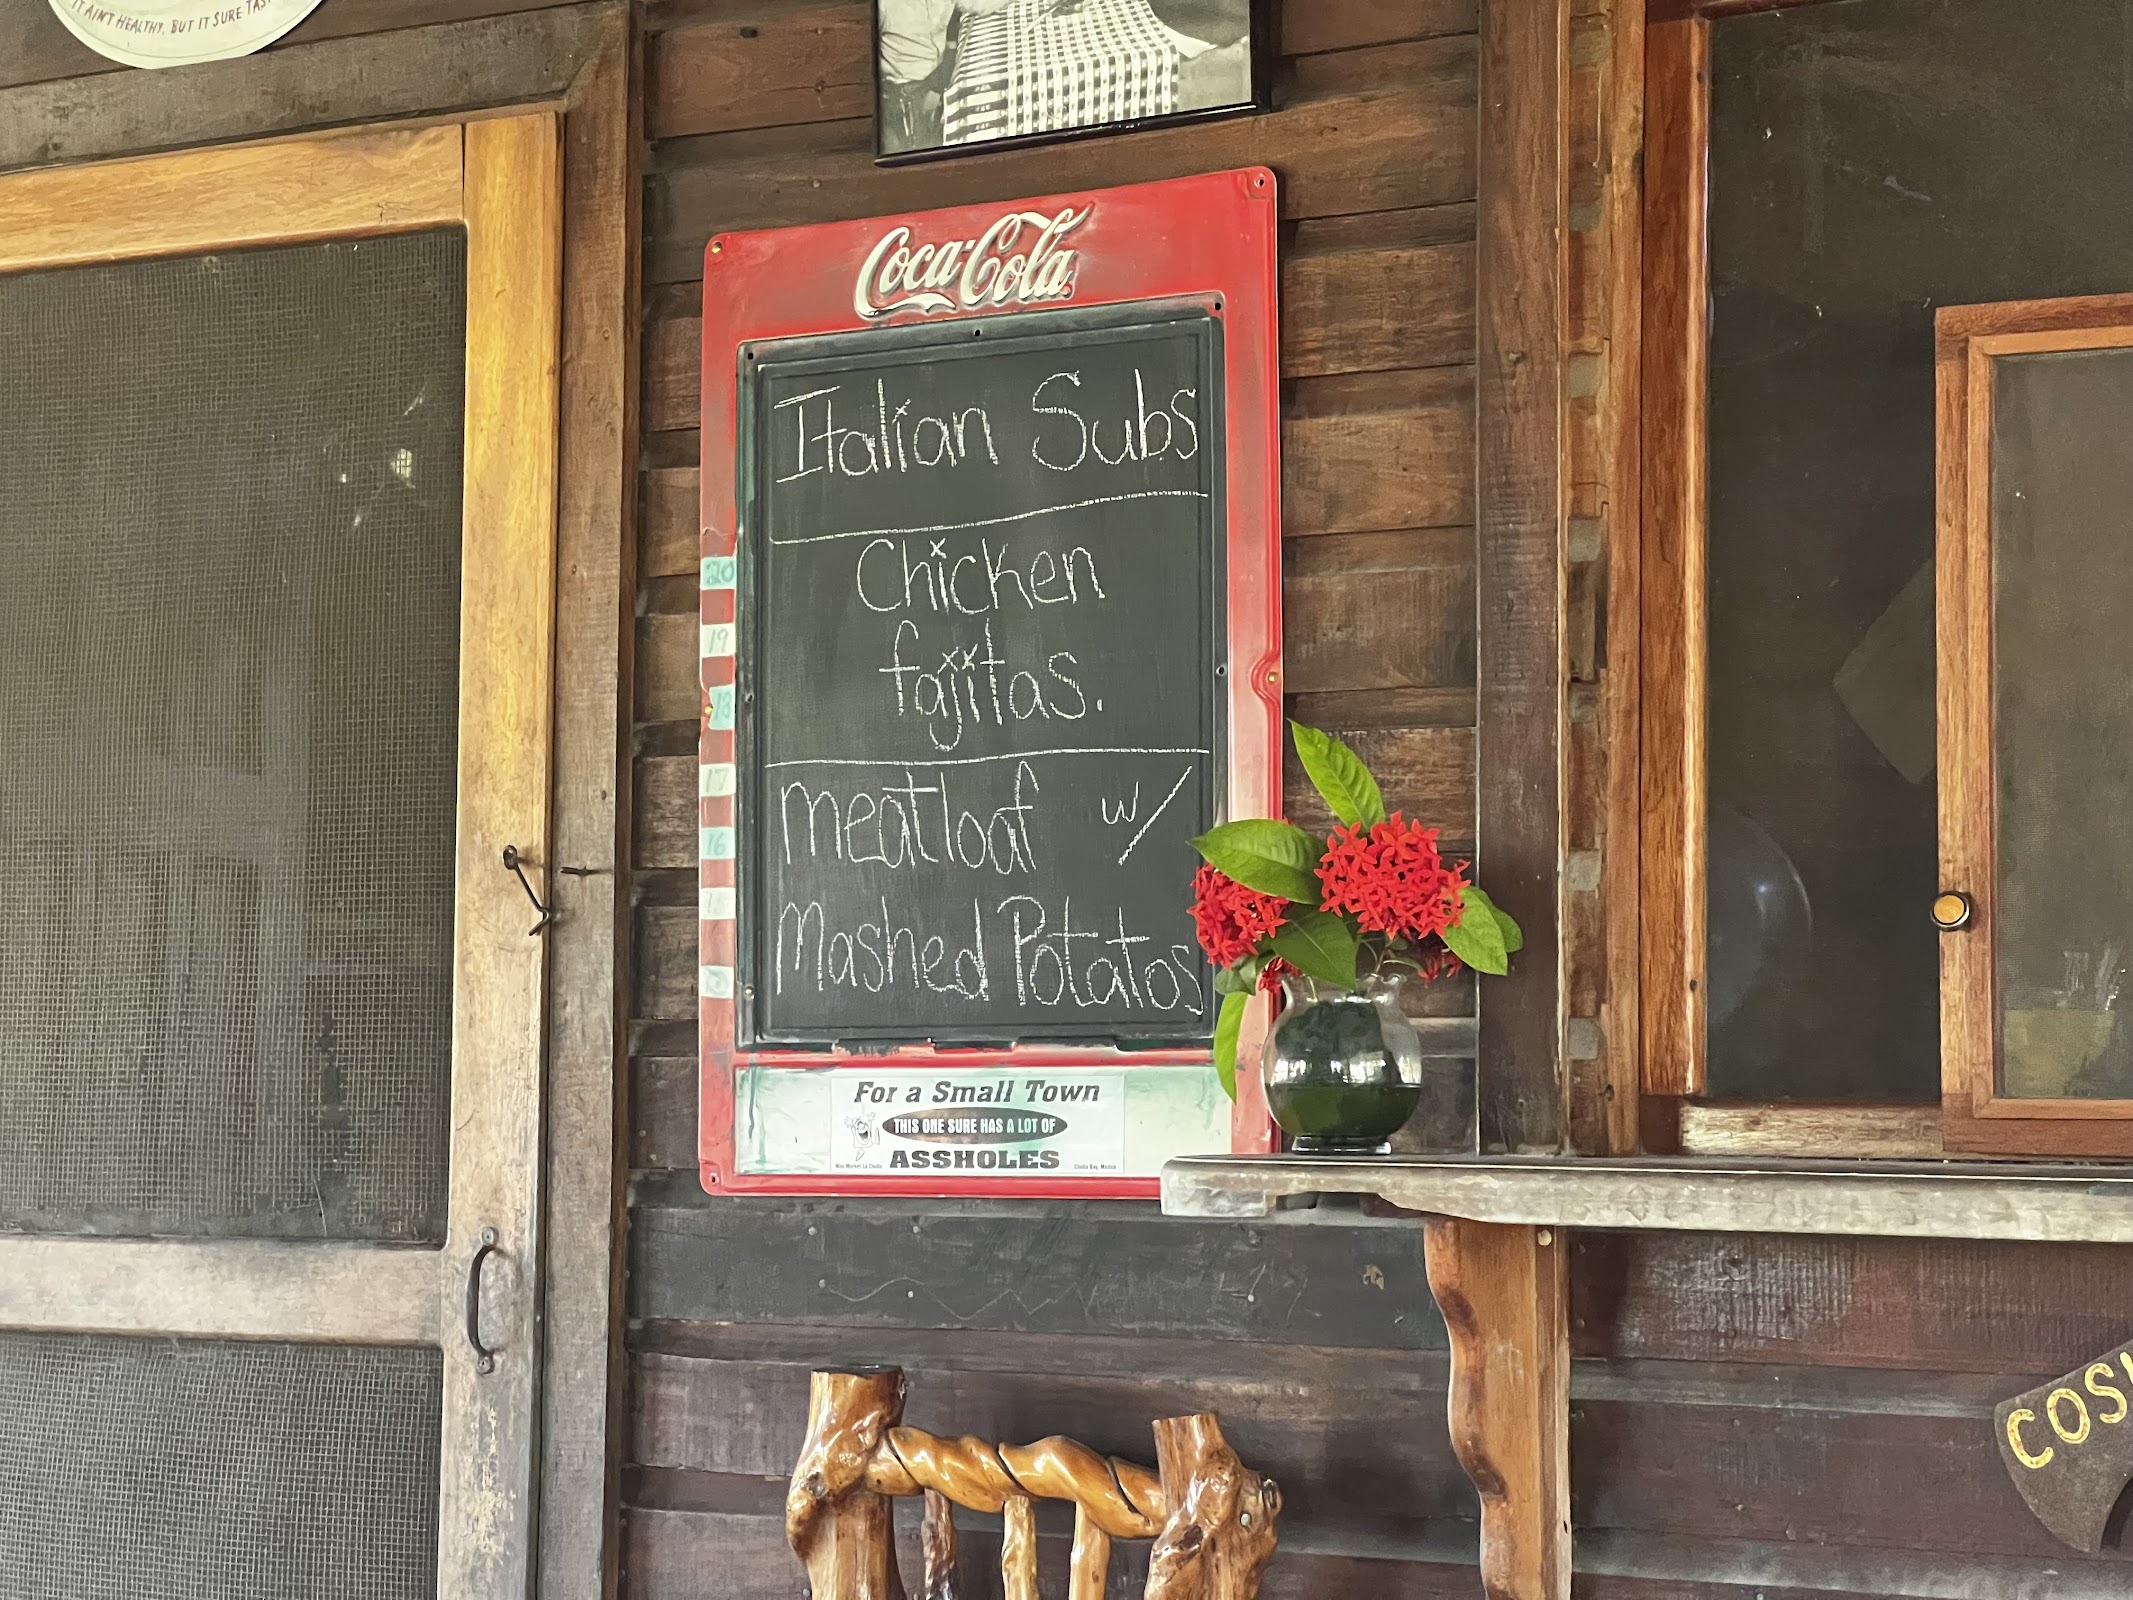 IT AIN'T HEALTHY, BUT IT SURE
Coca-Cola
Italian Subs
Chicken
fajiitas.
20
19
18
17
16
meatloaf w/
Mashed Potatos
For a Small Town
THIS ONE SURE HAS A LOT OF
ASSHOLES